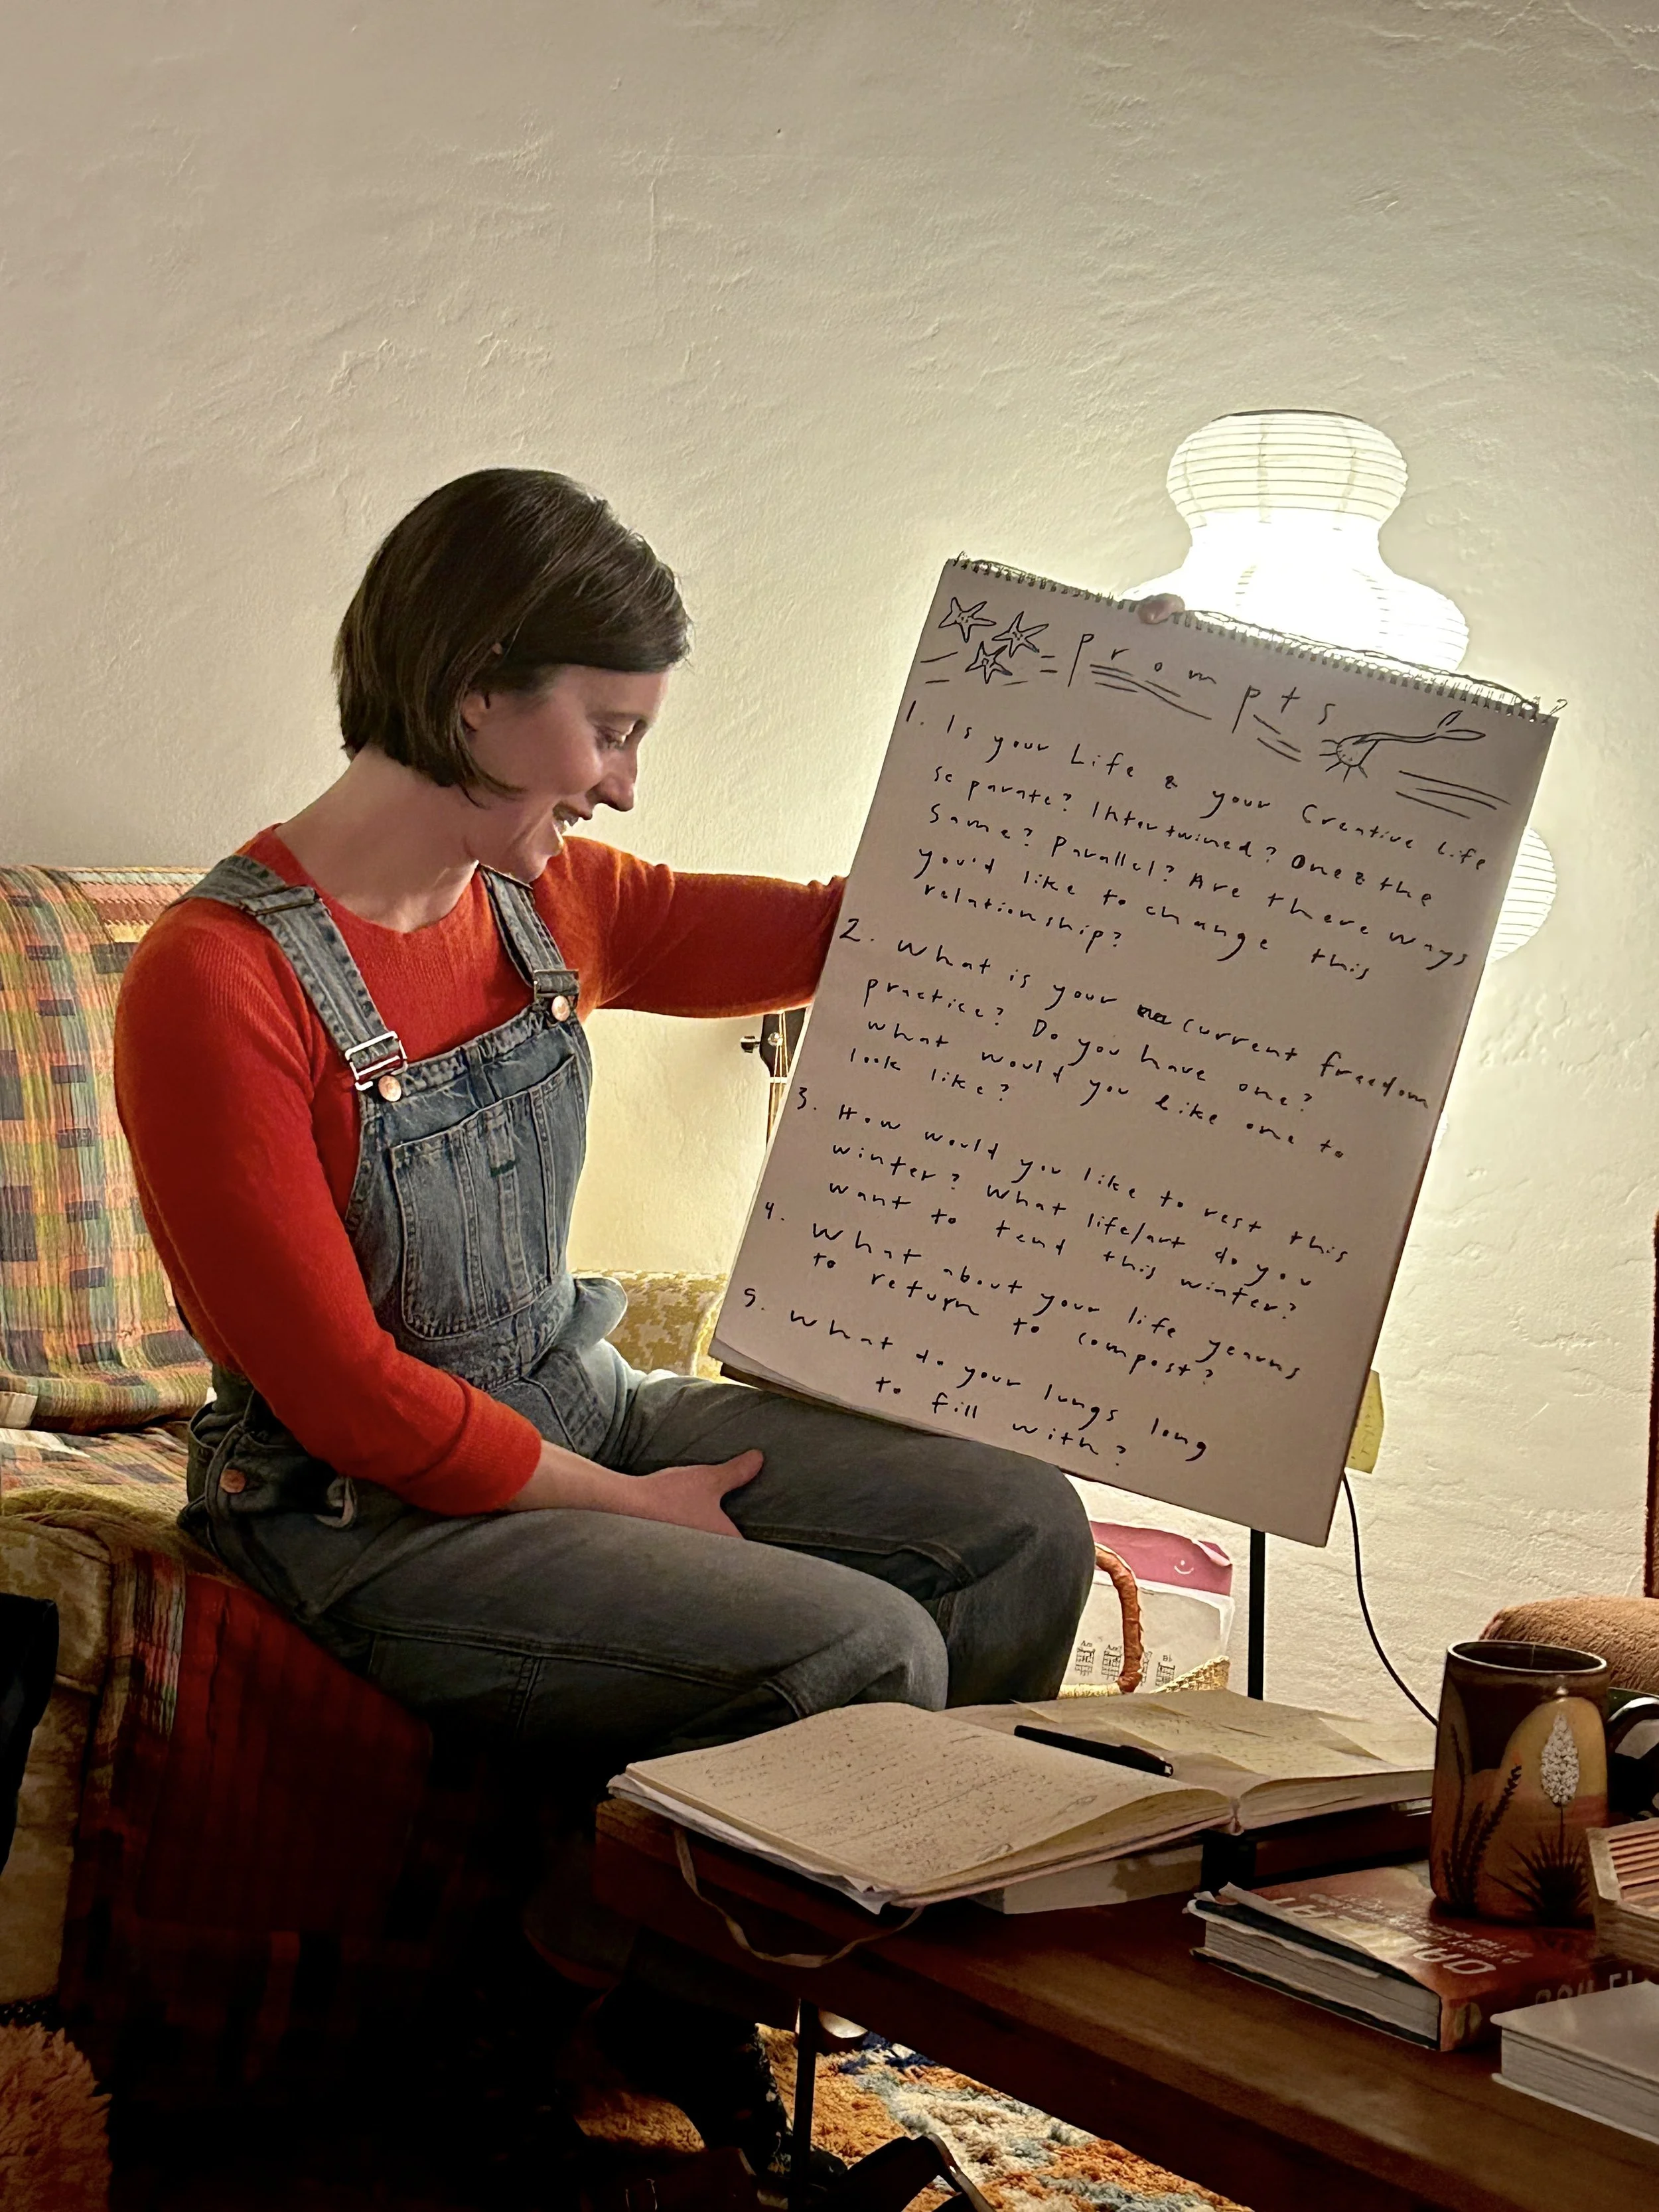 prompts
1. Is your Life & your Creative Life
separate? Intertwined? One & the
Same? Parallel? Are there ways
you'd like to change this
relationship?
2. What is your current freedom
practice? Do you have one?
what would you like one to
look like?
3. How would you like to rest this
winter? What life/art do you
want to tend this winter?
4. What about your life yearns
to return to compost?
5. What do your lungs long
to fill with?